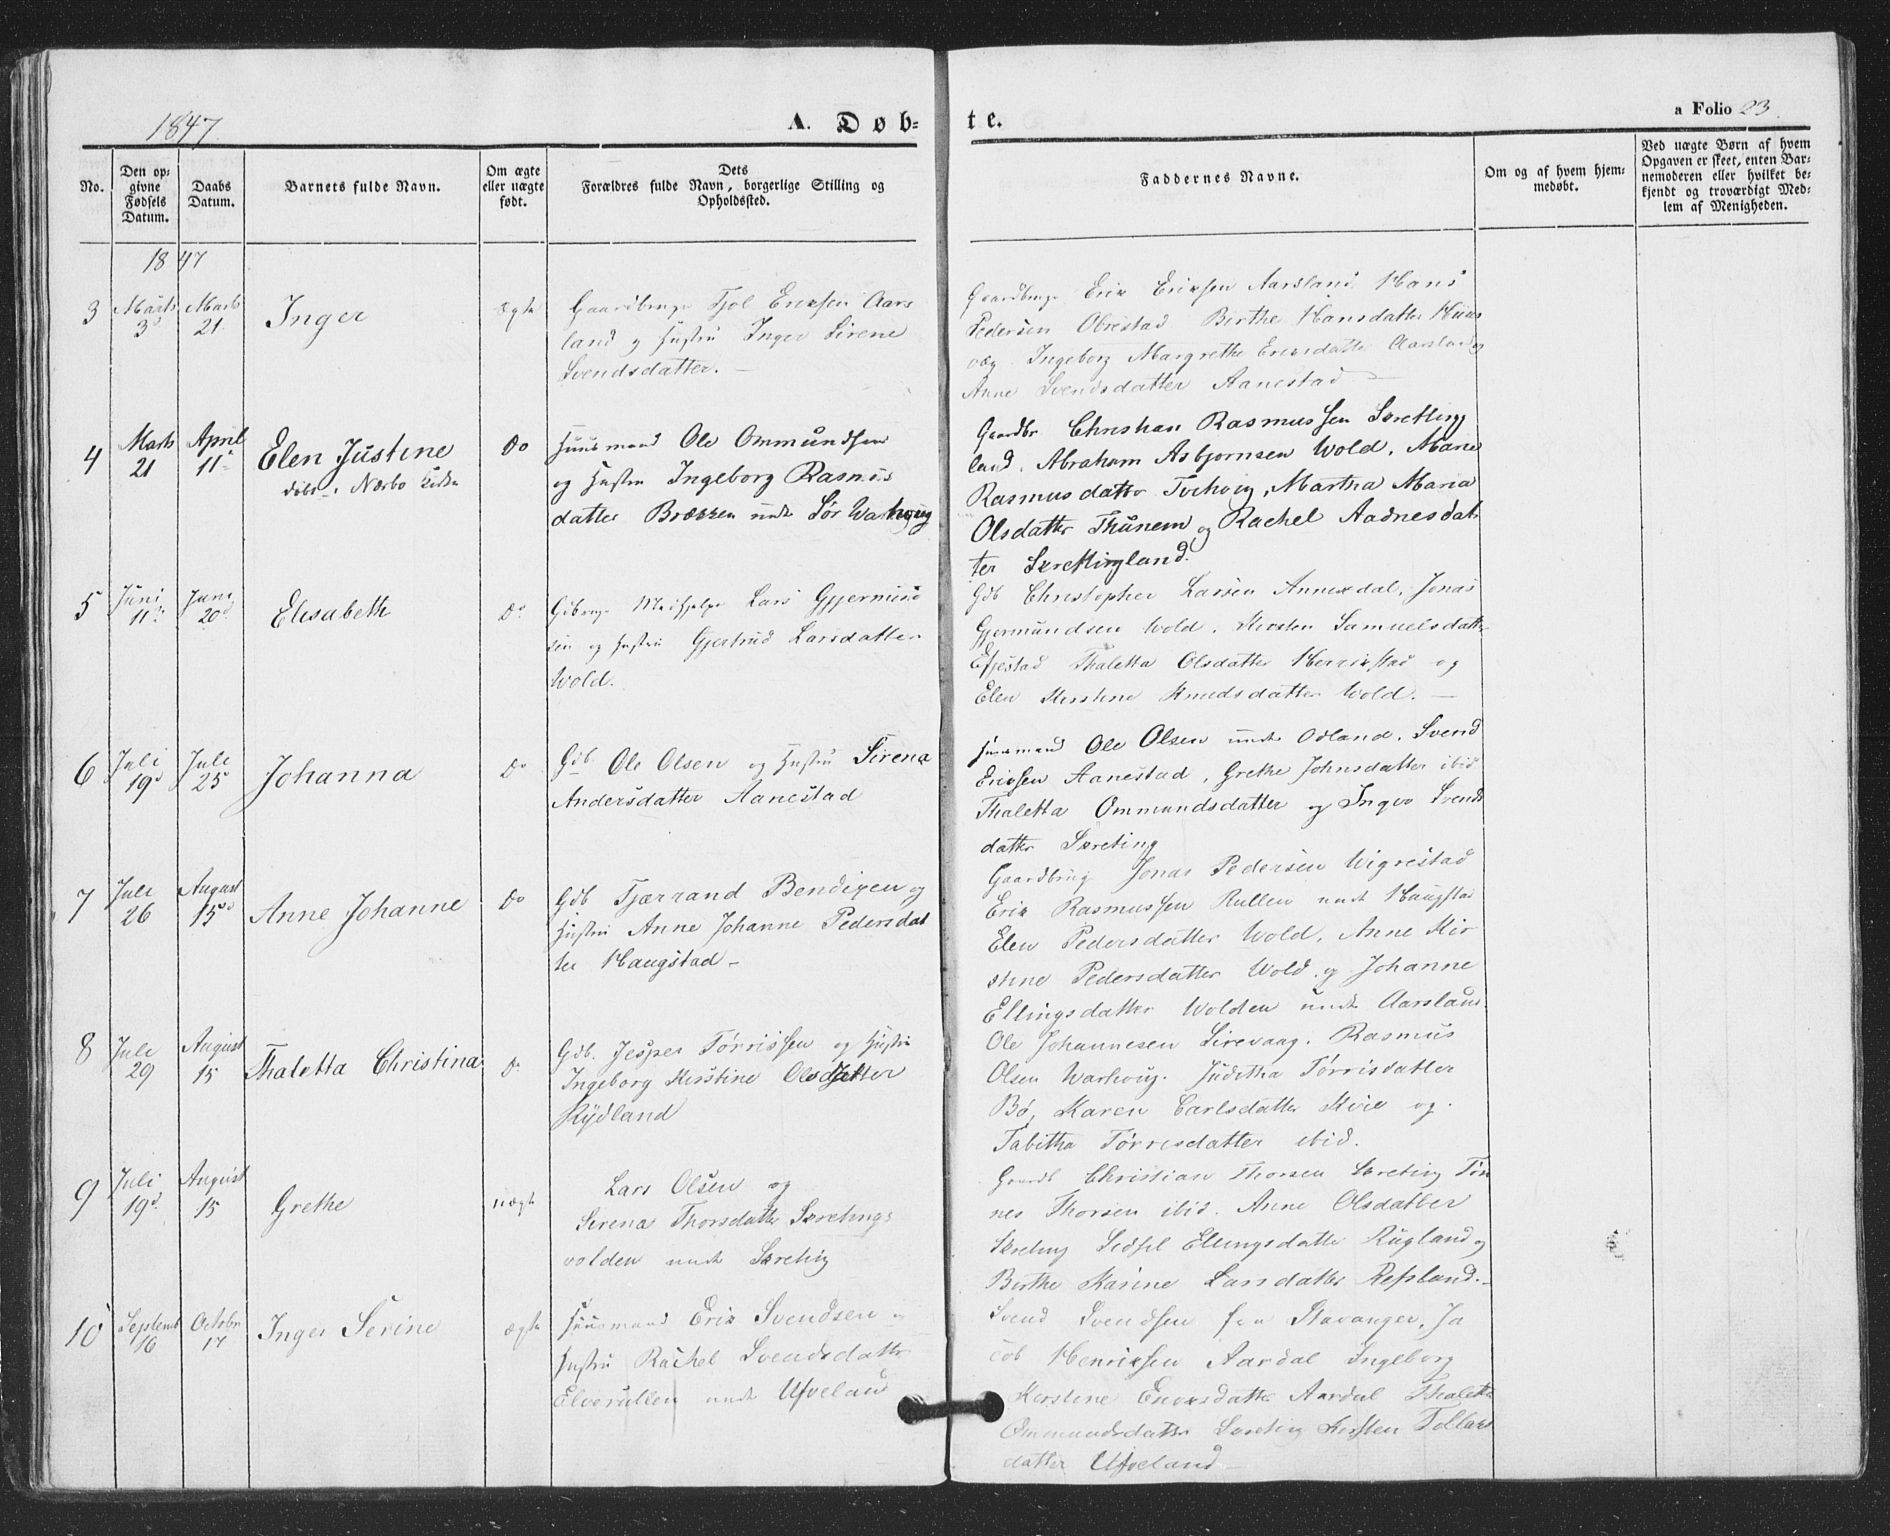 1847
A. Døb-
te.
a Folio 23
No.
Den op-
givne
Fødsels
Datum.
Daabs
Datum.
Barnets fulde Navn.
Om ægte
eller uægte
født.
Dets
Forældres fulde Navn, borgerlige Stilling og
Opholdssted.
Faddernes Navne.
Om og af hvem hjem-
medøbt.
Ved uægte Børn af hvem
Opgaven er skeet, enten Bar-
nemoderen eller hvilket be-
kjendt og troværdigt Med-
lem af Menigheden.
1847
3
Marts
3d
Marts
21
Inger
ægte
Gaardbruger Tjol Eriksen Aars
land og Hustru Inger Sirene
Svendsdatter.
Gaardbruger Erik Eriksen Aarsland Hans
Pedersen Obrestad Birthe Hansdatter Huus
væg Ingeborg Margrethe Eriksdatter Aarsland og
Anne Svendsdatter Aanestad
4
Marts
21
April
11
Elen Justine
døbt i Nærbø Kirke
Do
Huusmand Ole Ommundsen
og Hustru Ingeborg Rasmus
datter Brækken under Sør Warhoug
Gaardbr Christian Rasmussen Skretting
land, Abraham Asbjørnsen Wold, Marie
Rasmusdatter Tvihoug, Martha Maria
Olsdatter Thunem og Rachel Aadnesdat
ter Skrettingland.
5
Juni
11
Juni
20d
Elisabeth
Do
Gdbrugs Medhjelper Lars Gjermund
sen og Hustru Gjertrud Larsdatter
Wold.
Gdb Christopher Larsen Annexdal, Jonas
Gjermundsen Wold, Kirsten Samuelsdatter
Efjestad Thaletta Olsdatter Herrikstad og
Elen Kirstine Knudsdatter Wold.
6
Juli
19d
Juli
25
Johanna
Do
Gdb Ole Olsen og Hustru Sirena
Andersdatter Aanestad
Huusmand Ole Olsen under Odland, Svend
Eriksen Aanestad, Grethe Johnsdatter ibid
Thaletta Ommundsdatter og Inger Svends
datter Skreting
7
Juli
26
August
15
Anne Johanne
Do
Gdb Tjærrand Bendixen og
Hustru Anne Johanne Pedersdat
ter Haugstad
Gaardbrug Jonas Pedersen Wigrestad
Erik Rasmussen Rullen under Haugstad
Elen Pedersdatter Wold, Anne Kir
stine Pedersdatter Wold og Johanne
Ellingsdatter Wolden under Aarsland
8
Juli
29
August
15
Thaletta Christina
Do
Gdb. Jesper Tørrissen og Hustru
Ingeborg Kirstine Olsdatter
Rydland
Ole Johannesen Sirevaag. Rasmus
Olsen Warhoug. Juditha Tørrisdatter
Bø, Karen Carlsdatter Kvie og
Tabitha Tørrisdatter ibid.
9
Juli
19d
August
15
Grethe
uægte
Lars Olsen og
Sirena Thorsdatter Skretings
volden under Skreting
Gaardb Christian Thorsen Skreting Tøn
nes Thorsen ibid. Anne Olsdatter
Skreting Sidsel Ellingsdatter Rugland og
Birthe Karine Larsdatter Refsland.
10
Septemb
16
Octobr
17
Inger Serine
ægte
Huusmand Erik Svendsen og
Hustru Rachel Svendsdatter
Elverullen under Ufveland
Svend Svendsen fra Stavanger, Ja
cob Henriksen Aardal Ingeborg
Kerstine Enoksdatter Aardal Thaletta
Ommundsdatter Skreting Kirsten Tollaks
datter Ufveland